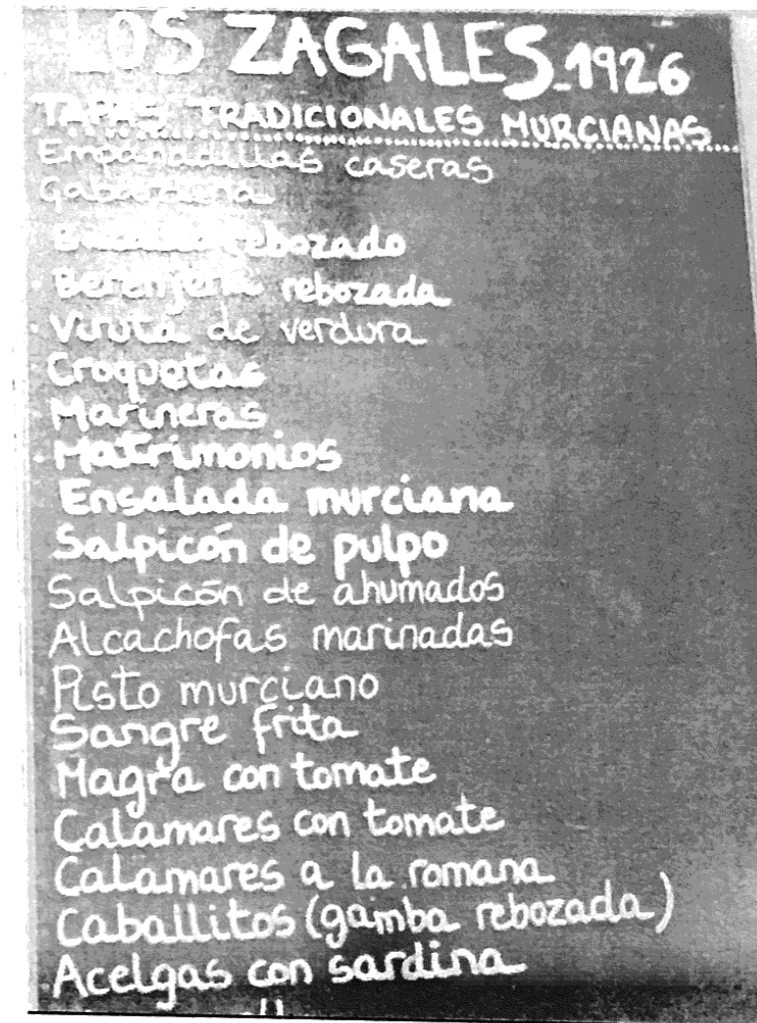 LOS ZAGALES_1926
TAPAS TRADICIONALES MURCIANAS
Empanadillas caseras
rebozado
Berenjena rebozada
Viruta de verdura
Croquetas
Marineras
Matrimonios
Ensalada murciana
Salpicón de pulpo
Salpicón de ahumados
Alcachofas marinadas
Pisto murciano
Sangre frita
Magra con tomate
Calamares con tomate
Calamares a la romana
Caballitos (gamba rebozada)
Acelgas con sardina